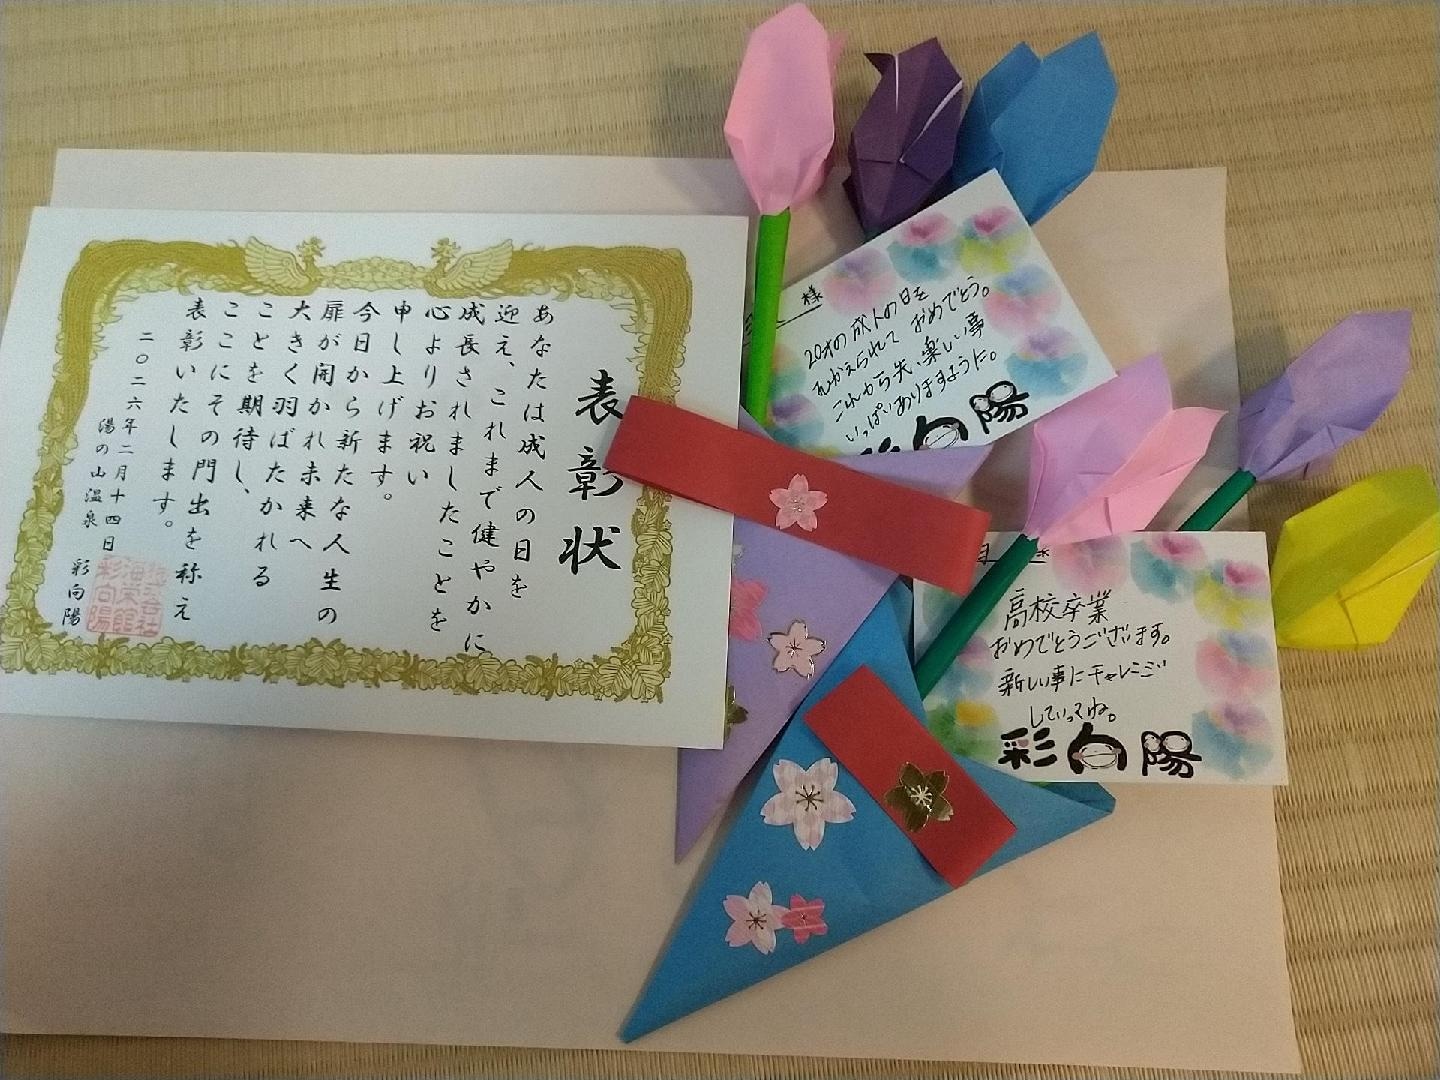 表彰状
あなたは成人の日を
迎え、これまで健やかに
成長されましたことを
心よりお祝い
申し上げます。
今日から新たな人生の
扉が開かれ未来へ
大きく羽ばたかれる
ことを期待し、
ここにその門出を称え
表彰いたします。
二〇二六年二月十四日
湯の山温泉 彩向陽
様
20才の成人の日を
むかえられて おめでとう。
これから先、楽しい事
いっぱいありますように。
彩向陽
高校卒業
おめでとうございます。
新しい事にチャレンジ
していってね。
彩向陽